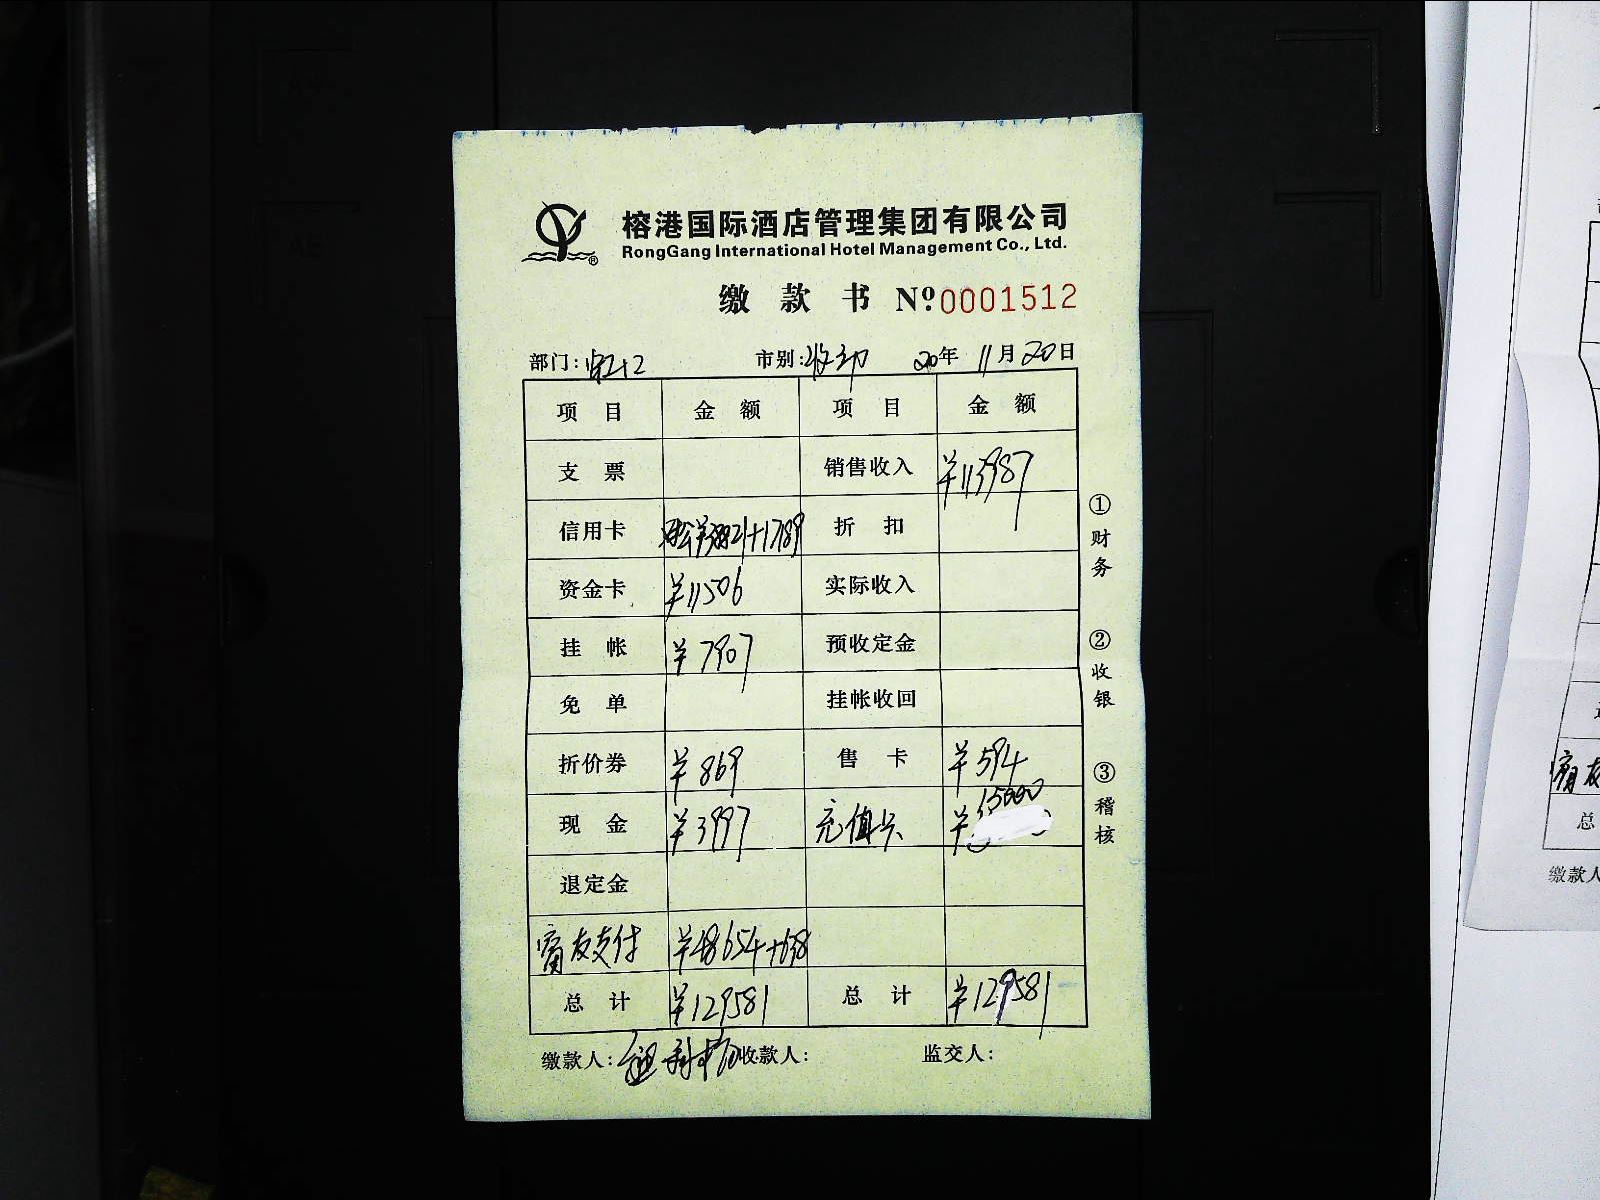 榕港国际酒店管理集团有限公司
RongGang International Hotel Management Co., Ltd.
缴款书 Nº0001512
部门: 市别: 20年 11月20日
项目 金额 项目 金额
支票 销售收入 ¥113987
信用卡 +1789 折扣
资金卡 ¥11506 实际收入
挂帐 ¥7907 预收定金
免单 挂帐收回
折价券 ¥869 售卡 ¥594
现金 ¥3997 充值卡 ¥15000
退定金
支付 ¥48654+638
总计 ¥129581 总计 ¥129581
缴款人: 收款人: 监交人:
①财务
②收银
③稽核
总
缴款人